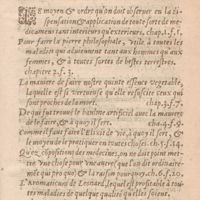 LE moyen & ordre qu'on doit observer en la di-
spensation & application de toute sorte de me-
dicamens tant interieurs qu'exterieurs. chap.1.f.1.
Pour faire la pierre philosophale, utile à toutes les
maladies qui adviennent tant aux hommes qu'aux
femmes, & à toutes sortes de bestes terrestres.
chapitre 2.f.3.
La maniere de faire nostre quinte essence vegetable,
laquelle est si vertueuse qu'elle resuscite ceux qui
sont proches de la mort. chap.3.f.7.
De qui fut trouvé le bausme artificiel avec la maniere
de le faire, & à quoy il sert. chap.4.f.9.
Comme il faut faire l'Elixir de vie, à quoy il sert, &
le moyen de le pratiquer en toutes choses. ch.5.f.14.
Qu'ez compositions des medecines, on ne doit point met-
tre une chose pour une autre (que l'on dit ordinaire-
ment qui pro quo) & la raison pourquoy. ch.6.f.20.
L'Aromatic de Leonard, lequel est profitable à tou-
tes maladies de quelque qualité qu'elles soient.